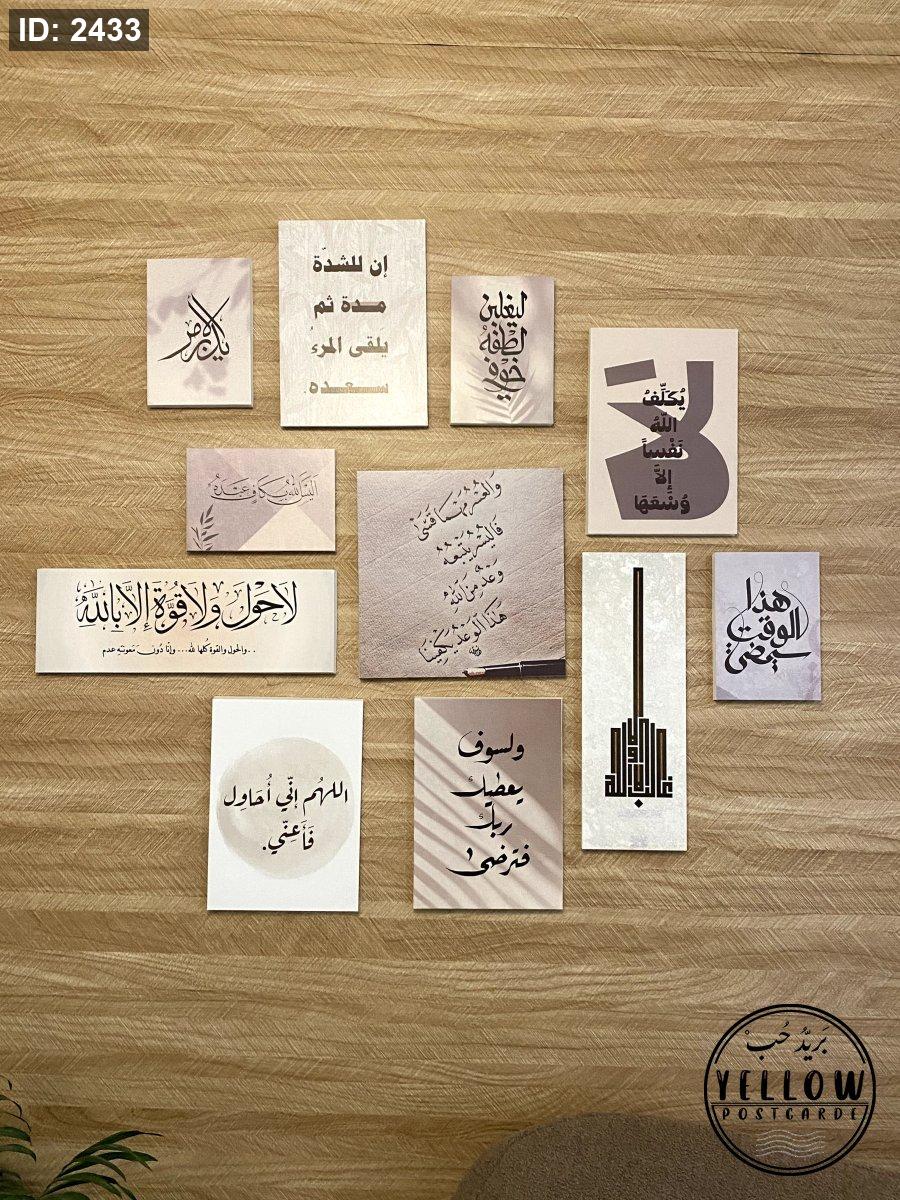 ID: 2433
يدبر الأمر
إن للشدّة
مدة ثم
يَلقى المرءُ
سعده.
ليغلبن
لطفهُ
خوفي
لا
يُكَلِّفُ
اللّٰهُ
نَفْساً
إِلاَّ
وُسْعَهَا
أَلَيْسَ اللهُ بِكَافٍ عَبْدَهُ
وَالعُسْرُ مَهْمَا قَسَىٰ
فَاليُسْرُ يَتْبَعُهُ
وَعْدٌ مِنَ اللهِ
هَذَا الوَعْدُ يَكْفِينَا
لَاحَوْلَ وَلَاقُوَّةَ إِلَّا بِاللَّهِ
..والحول والقوة كُلها لله... وإنّا دُونَ مَعونتهِ عدم
هذا
الوقت
سيمضي
ولا غالب إلا الله
اللهُم إنّي أُحَاوِل
فَأَعِنّي.
ولسوف
يعطيك
ربك
فترضىٰ
بَريدُ حُبْ
YELLOW
POSTCARDE